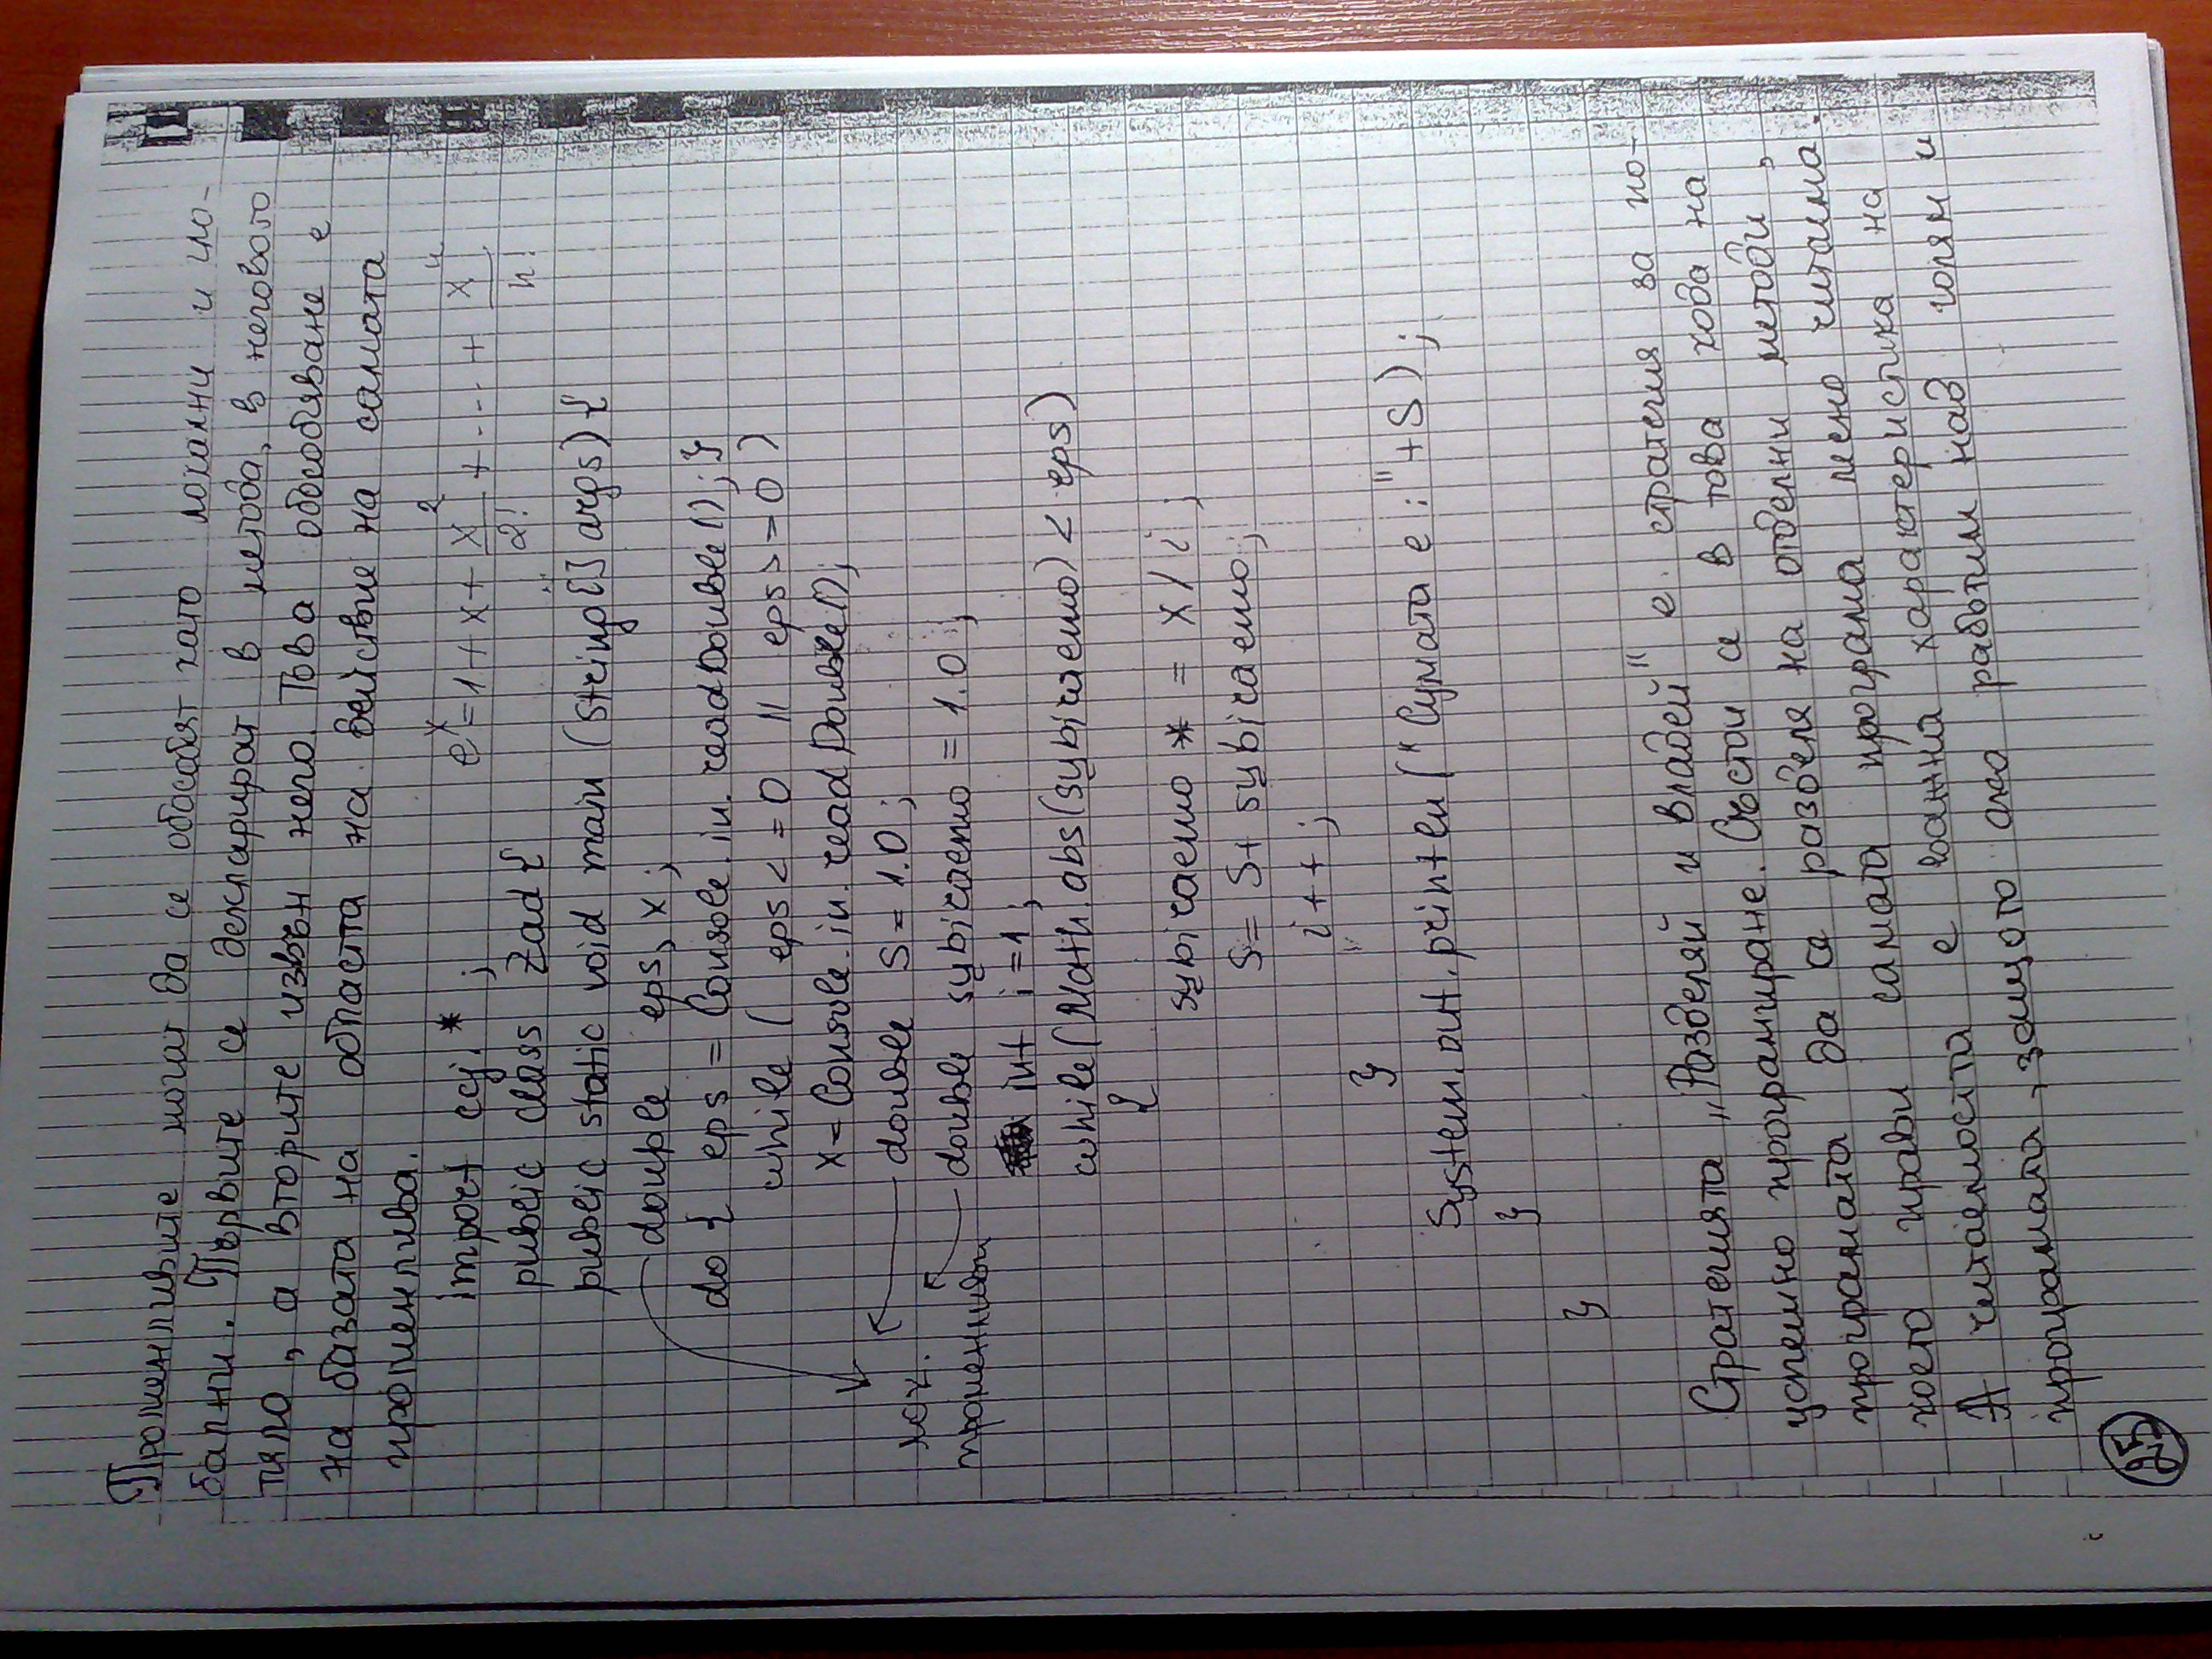 Променливите могат да се обособят като локални и гло-
бални. Първите се декларират в метода, в неговото
тяло, а вторите извън него. Това обособяване е
на базата на областта на действие на самата
променлива.
e^x = 1 + x + x^2/2! + ... + x^n/n!
import ccj.*;
public class Zad {
public static void main (String[] args) {
double eps, x;
do { eps = Console.in.readDouble(); }
while ( eps <= 0 || eps >= 0 )
x = Console.in.readDouble();
double S = 1.0;
лок.
double sybiraemo = 1.0;
променливи
int i = 1;
while (Math.abs(sybiraemo) < eps)
{
sybiraemo *= x / i;
S = S + sybiraemo;
i++;
}
System.out.println ("Сумата е:" + S);
}
}
Стратегията „Разделяй и владей" е стратегия за по-
успешно програмиране. Състои се в това хода на
програмата да се разделя на отделни методи,
което прави самата програма лесно читаема.
А читаемостта е важна характеристика на
програмата, защото ако работим над голям и
25